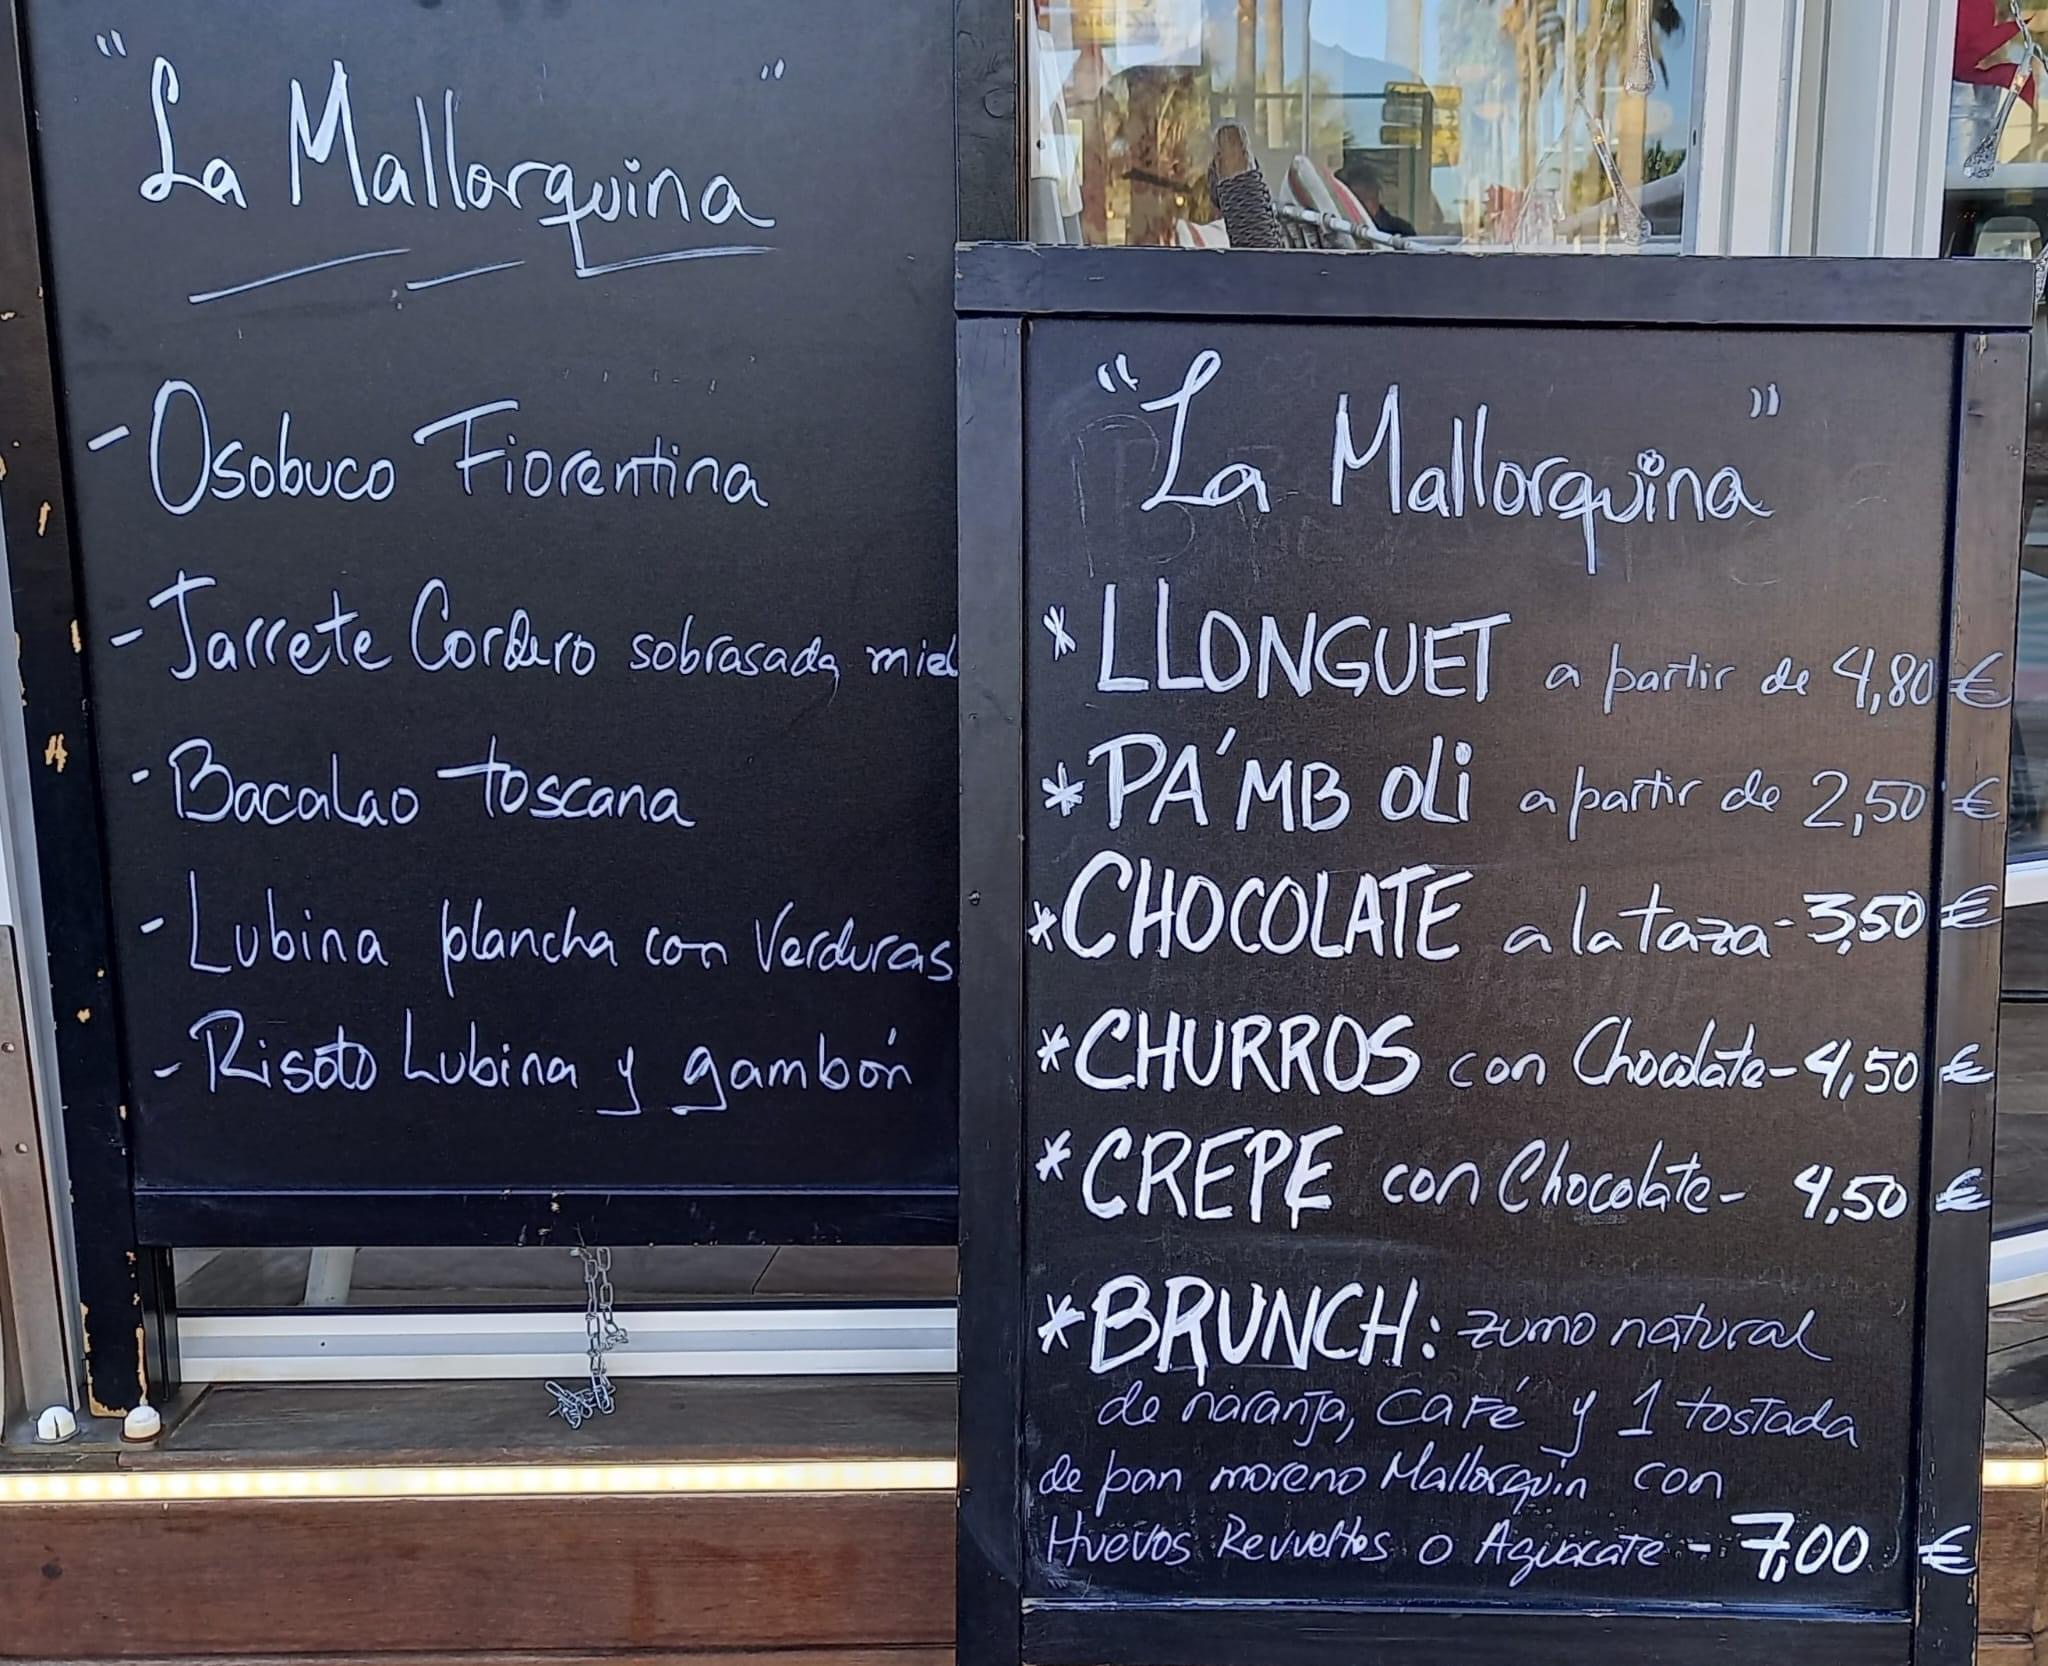 "La Mallorquina"
- Osobuco Fiorentina
- Jarrete Cordero sobrasada miel
- Bacalao toscana
- Lubina plancha con Verduras
- Risoto Lubina y gambón
"La Mallorquina"
* LLONGUET a partir de 4,80 €
* PA´MB OLi a partir de 2,50 €
* CHOCOLATE a la taza - 3,50 €
* CHURROS con Chocolate - 4,50 €
* CREPE con Chocolate - 4,50 €
* BRUNCH: zumo natural
de naranja, café y 1 tostada
de pan moreno Mallorquin con
Huevos Revueltos o Aguacate - 7,00 €